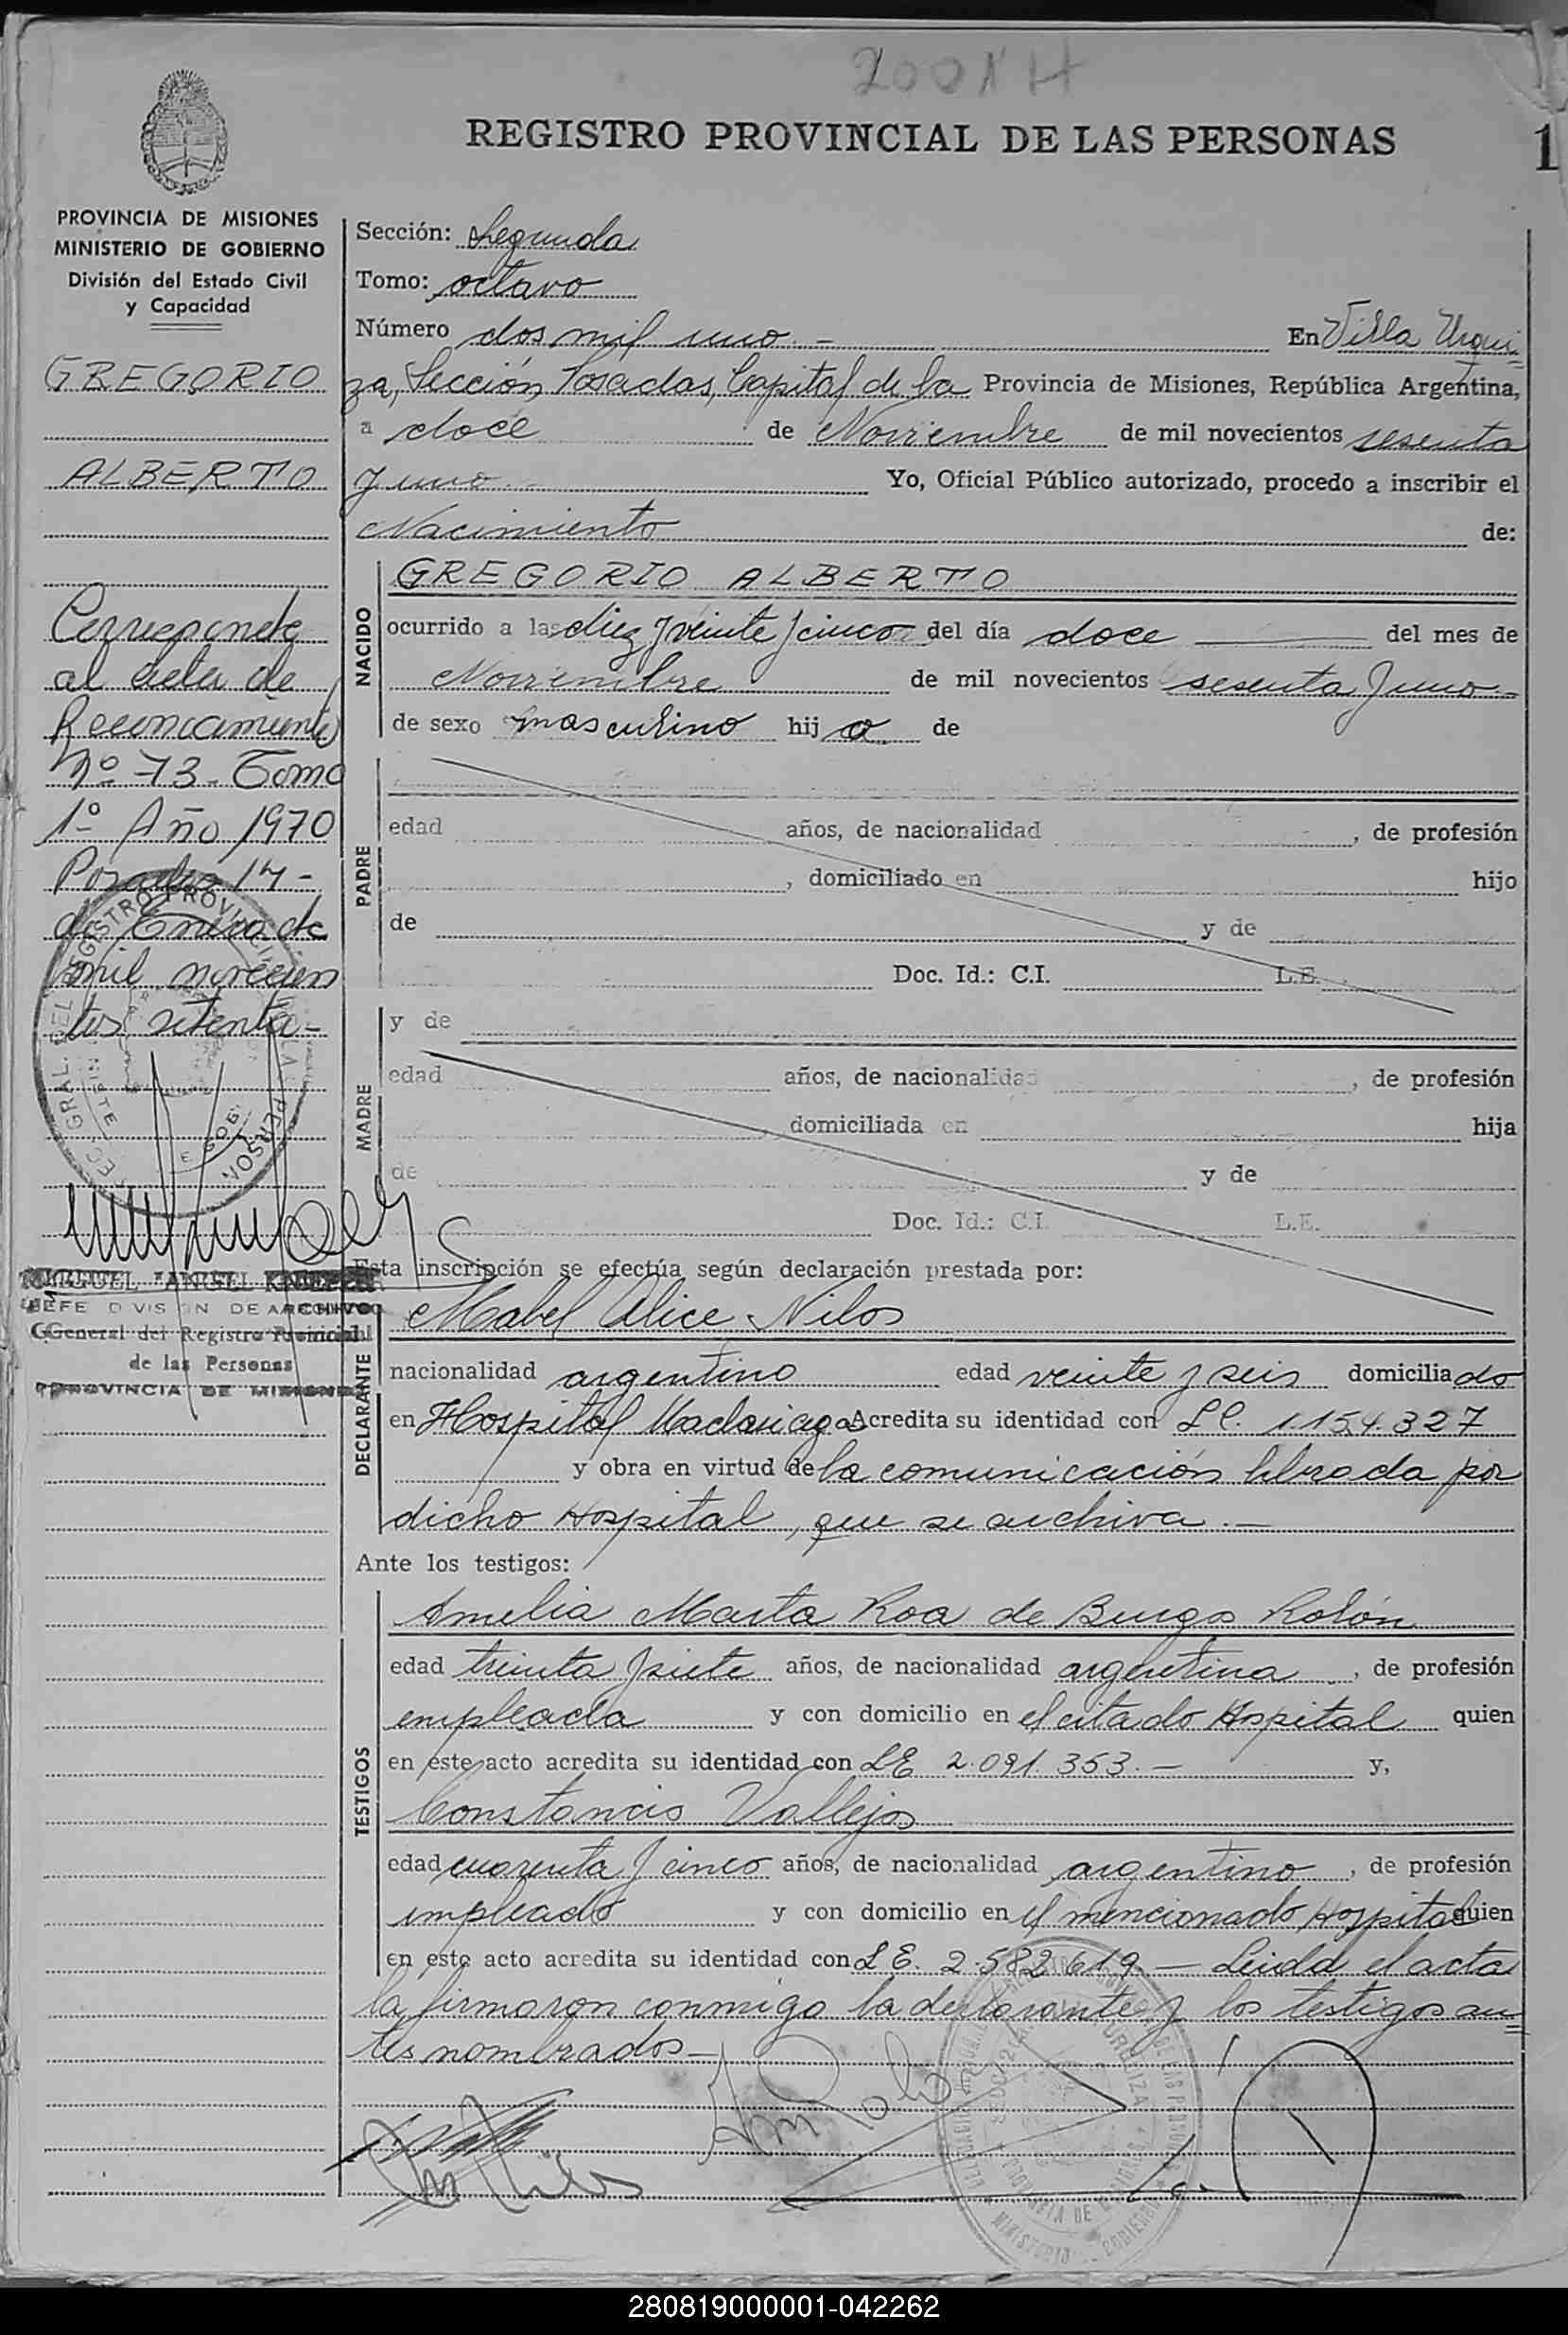 2001 H
REGISTRO PROVINCIAL DE LAS PERSONAS
1
PROVINCIA DE MISIONES
MINISTERIO DE GOBIERNO
División del Estado Civil
y Capacidad
GREGORIO
ALBERTO
Corresponde
al acta de
Reconocimiento
Nº 73 - Tomo
1º Año 1970
Posadas 14 -
de Enero de
mil novecien
tos setenta -
JEFE DIVISION DE ARCHIVO
General del Registro Provincial
de las Personas
PROVINCIA DE MISIONES
Sección: Segunda
Tomo: octavo
Número dos mil uno. - En Villa Urqui
za, Sección Posadas, Capital de la Provincia de Misiones, República Argentina,
a doce de Noviembre de mil novecientos sesenta
y uno. - Yo, Oficial Público autorizado, procedo a inscribir el
Nacimiento de:
NACIDO
GREGORIO ALBERTO
ocurrido a las diez y veinte y cinco del día doce del mes de
Noviembre de mil novecientos sesenta y uno -
de sexo masculino hijo de
PADRE
edad años, de nacionalidad , de profesión
, domiciliado en hijo
de y de
Doc. Id.: C.I. L.E.
MADRE
y de
edad años, de nacionalidad , de profesión
, domiciliada en hija
de y de
Doc. Id.: C.I. L.E.
Esta inscripción se efectúa según declaración prestada por:
DECLARANTE
Mabel Alice Nilos
nacionalidad argentino edad veinte y seis domiciliado
en Hospital Madariaga Acredita su identidad con L.C. 1.154.327
y obra en virtud de la comunicación librada por
dicho Hospital, que se archiva. -
Ante los testigos:
TESTIGOS
Amelia Marta Roa de Burgos Rolón
edad treinta y siete años, de nacionalidad argentina , de profesión
empleada y con domicilio en el citado Hospital quien
en este acto acredita su identidad con LE 2.091.353. - y,
Constancio Vallejos
edad cuarenta y cinco años, de nacionalidad argentino , de profesión
empleado y con domicilio en el mencionado Hospital quien
en este acto acredita su identidad con L E. 2.582.619. - Leída el acta
la firmaron conmigo la declarante y los testigos an
tes nombrados -
280819000001-042262